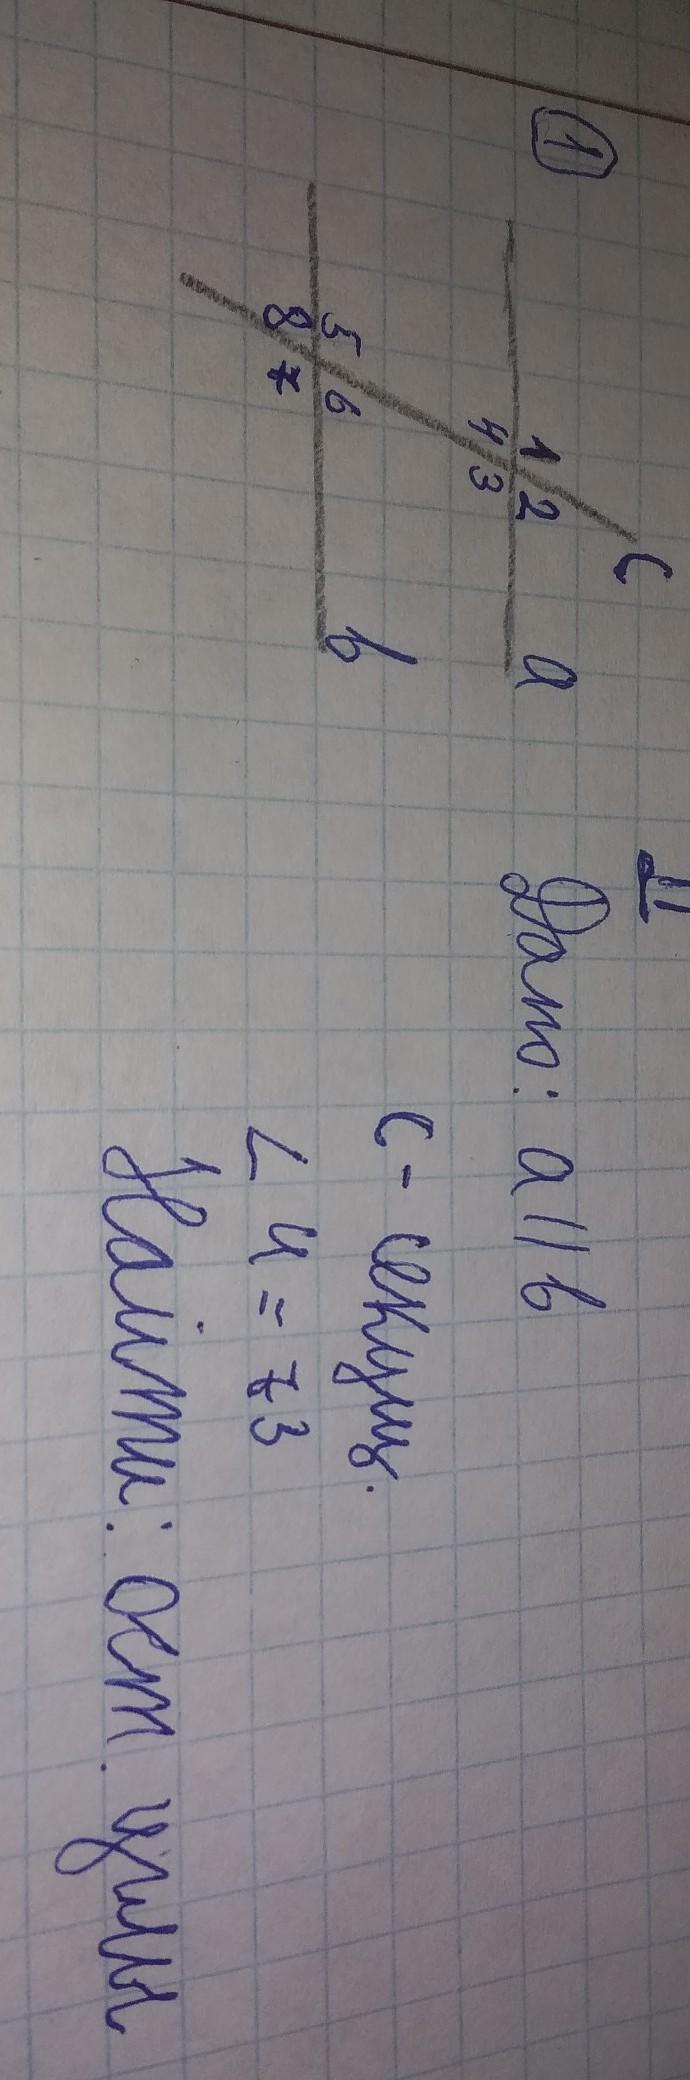 II
① Дано: a || b
c - секущ.
∠ 4 = 73
Найти: ост. углы
c
1 2 a
4 3
5 6 b
8 7